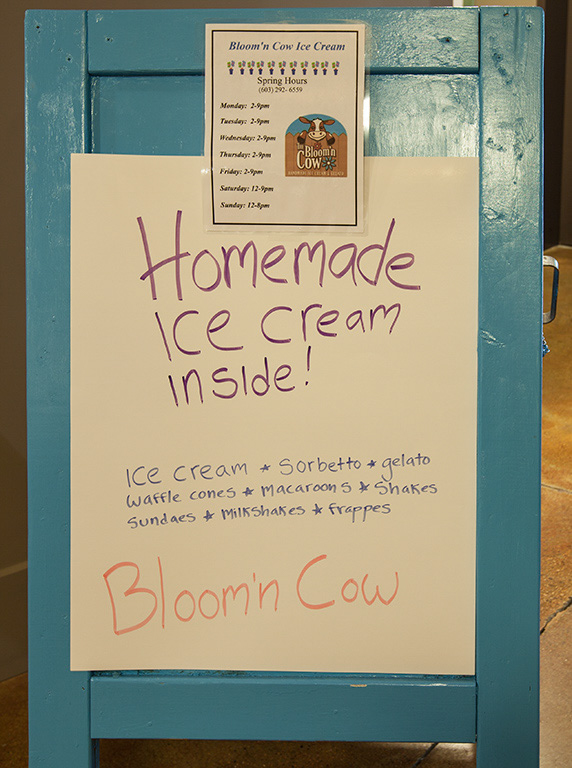 Bloom'n Cow Ice Cream
Spring Hours
(603) 292- 6559
Monday: 2-9pm
Tuesday: 2-9pm
Wednesday: 2-9pm
Thursday: 2-9pm
Friday: 2-9pm
Saturday: 12-9pm
Sunday: 12-8pm
Bloom'n
Cow
Homemade
Ice Cream
inside!
Ice cream * Sorbetto * gelato
Waffle cones * Macaroons * Shakes
Sundaes * Milkshakes * frappes
Bloom'n Cow